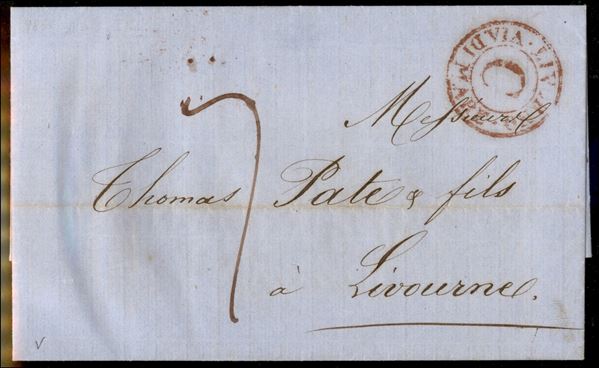 Messieurs
Thomas Pate & fils
à Livourne.
7
VIA DI MARE
C
v